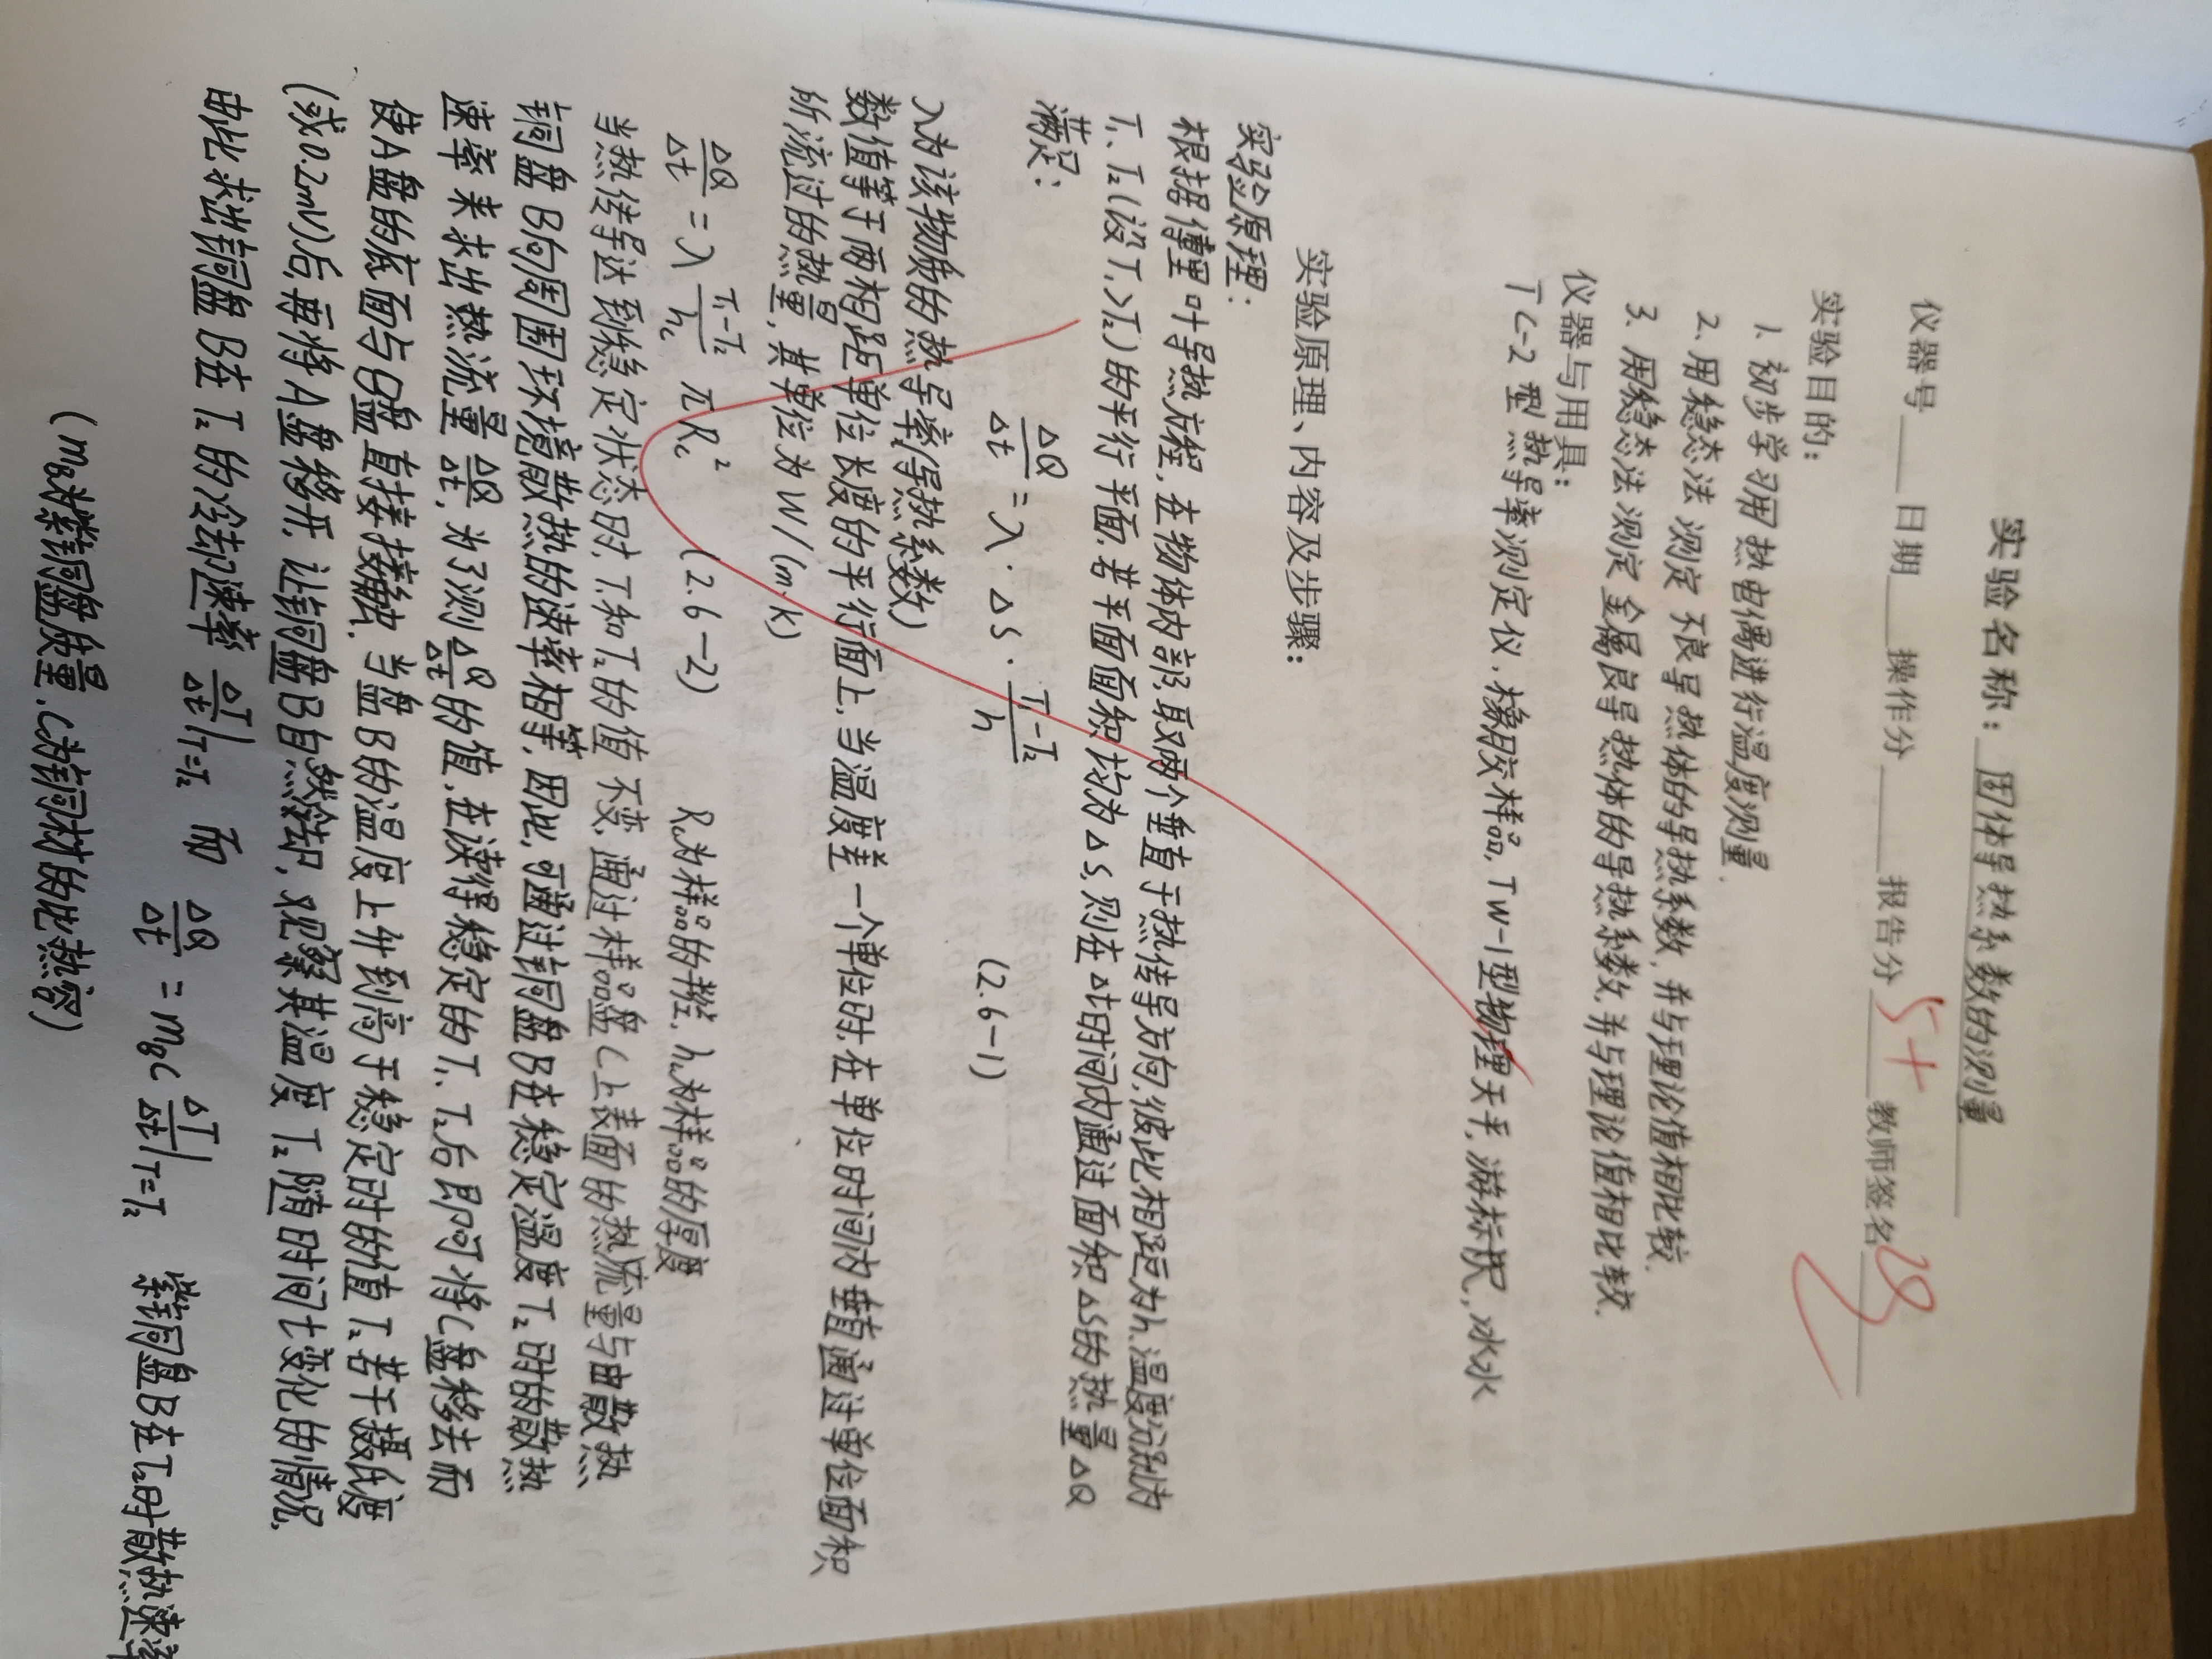 实验名称：固体导热系数的测量
仪器号 日期 操作分 报告分 5+ 教师签名
实验目的：
1. 初步学习用热电偶进行温度测量.
2. 用稳态法测定不良导热体的导热系数, 并与理论值相比较.
3. 用稳态法测定金属良导热体的导热系数, 并与理论值相比较.
仪器与用具：
TC-2型热导率测定仪、橡胶样品, TW-1型物理天平, 游标尺, 冰水
实验原理、内容及步骤：
实验原理：
根据傅里叶导热方程, 在物体内部, 取两个垂直于热传导方向, 彼此相距为h、温度分别为
T₁、T₂(设T₁>T₂)的平行平面, 若平面面积均为ΔS, 则在Δt时间内通过面积ΔS的热量ΔQ
满足：
ΔQ/Δt = λ·ΔS·(T₁-T₂)/h (2.6-1)
λ为该物质的热导率(导热系数)
数值等于两相距单位长度的平行面上, 当温度差一个单位时, 在单位时间内垂直通过单位面积
所流过的热量, 其单位为W/(m·k)
ΔQ/Δt = λ (T₁-T₂)/hc πRc² (2.6-2) Rc为样品的半径, hc为样品的厚度
当热传导达到稳定状态时, T₁和T₂的值不变, 通过样品盘C上表面的热流量与由散热
铜盘B向周围环境散热的速率相等, 因此, 可通过铜盘B在稳定温度T₂时的散热
速率来求出热流量ΔQ/Δt, 为了测ΔQ/Δt的值, 在读得稳定的T₁、T₂后即可将C盘移去而
使A盘的底面与B盘直接接触, 当盘B的温度上升到高于稳定时的值T₂若干摄氏度
(或0.2mV)后, 再将A盘移开, 让铜盘B自然冷却, 观察其温度T₂随时间t变化的情况,
由此求出铜盘B在T₂的冷却速率 ΔT/Δt|T=T₂ 而 ΔQ/Δt = mBC ΔT/Δt|T=T₂ 紫铜盘B在T₂时散热速率
(mB为紫铜盘质量, C为铜材的比热容)